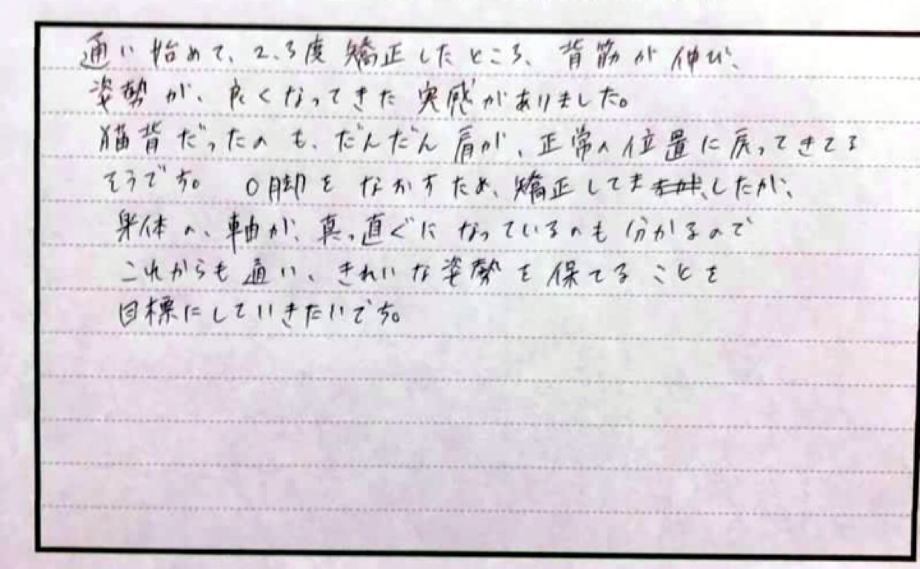 通い始めて、2.3度矯正したところ、背筋が伸び、
姿勢が、良くなってきた実感がありました。
猫背だったのも、だんだん肩が、正常の位置に戻ってきてる
そうです。 O脚をなおすため、矯正してま したが、
身体の、軸が、真っ直ぐになっているのも分かるので
これからも通い、きれいな姿勢を保てることを
目標にしていきたいです。